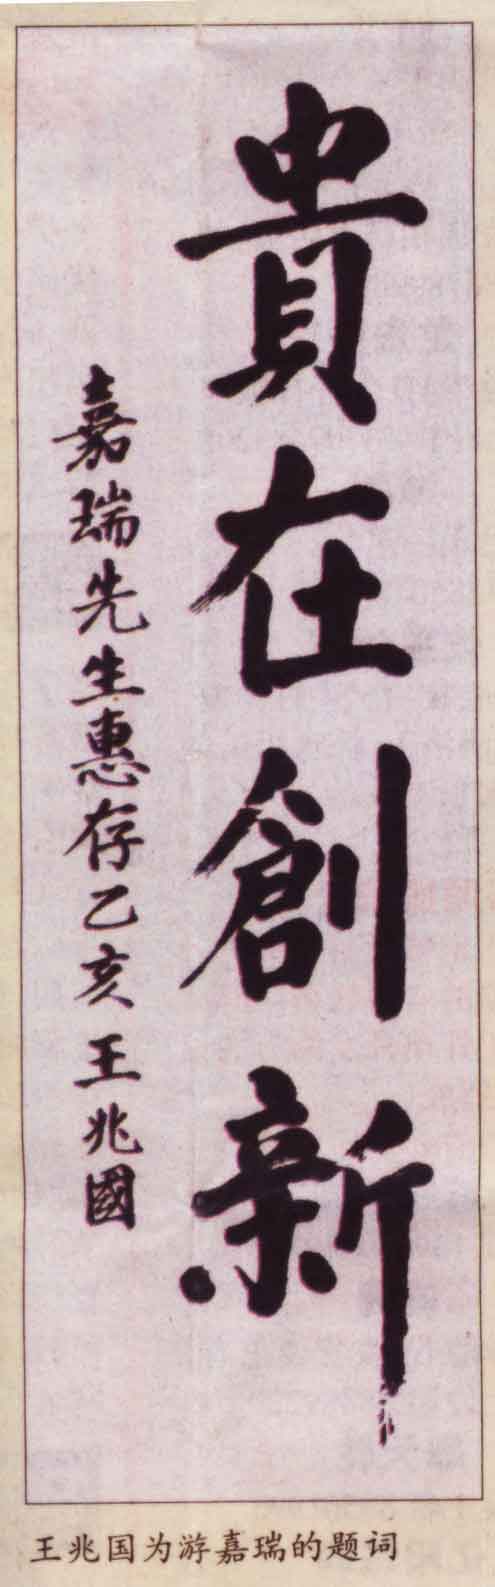 貴在創新
嘉瑞先生惠存乙亥王兆國
王兆国为游嘉瑞的题词